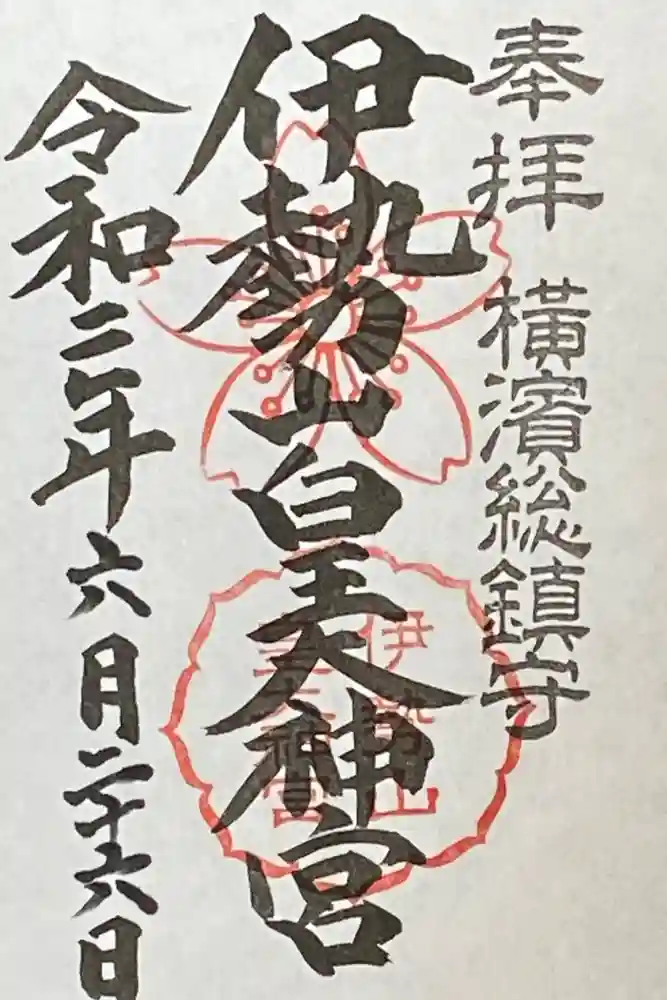 奉拝 横濱総鎮守
伊勢山皇大神宮
伊勢山
皇大神宮
令和二年六月二十六日